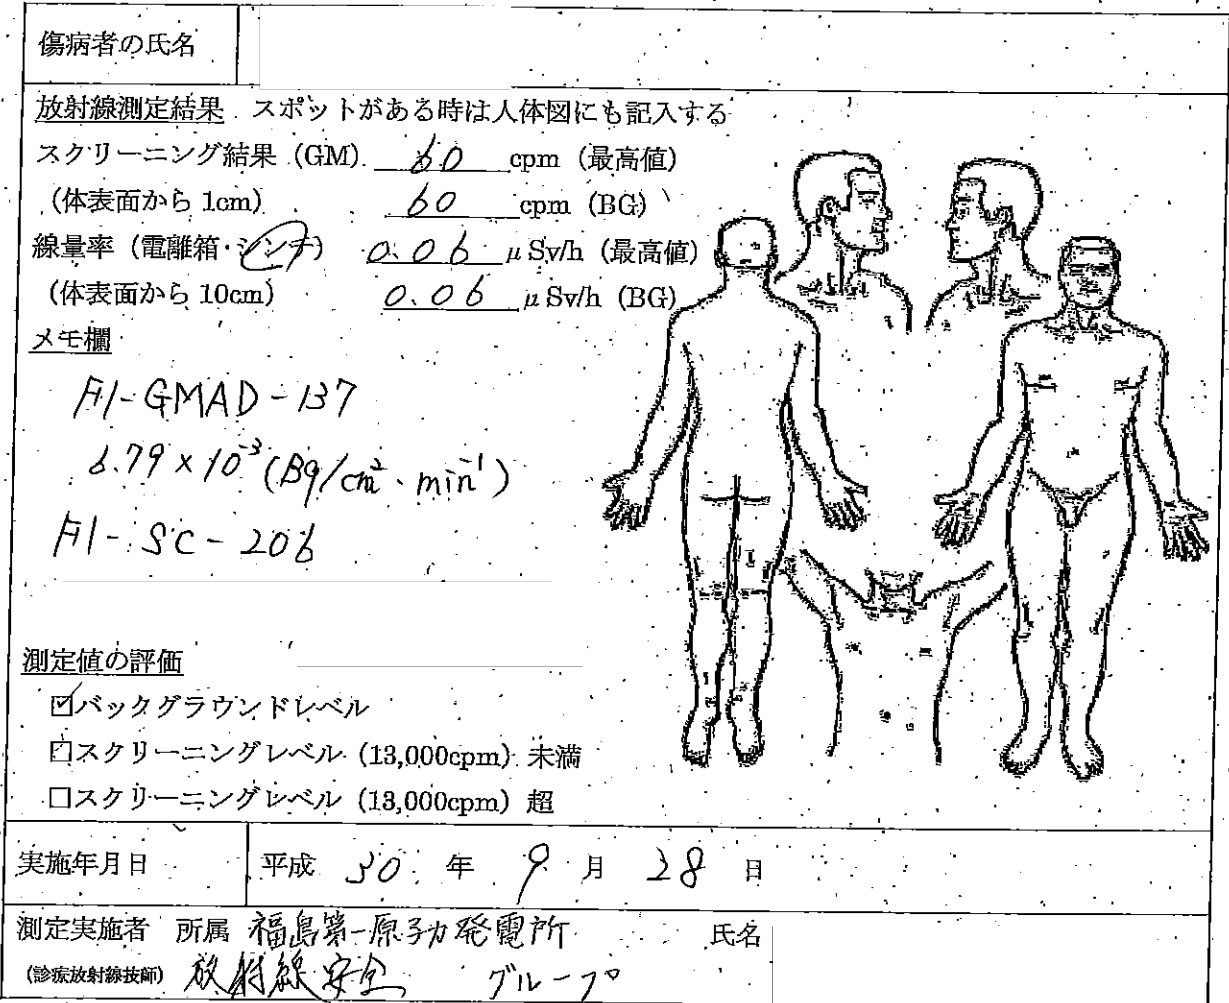 傷病者の氏名
放射線測定結果 スポットがある時は人体図にも記入する
スクリーニング結果 (GM) 60 cpm (最高値)
(体表面から 1cm) 60 cpm (BG)
線量率 (電離箱・シンチ) 0.06 μSv/h (最高値)
(体表面から 10cm) 0.06 μSv/h (BG)
メモ欄
F1-GMAD-137
6.79×10⁻³(Bq/cm²・min⁻¹)
F1-SC-206
測定値の評価
☑バックグラウンドレベル
☐スクリーニングレベル (13,000cpm) 未満
☐スクリーニングレベル (13,000cpm) 超
実施年月日 平成 30 年 9 月 28 日
測定実施者 所属 福島第一原子力発電所 氏名
(診療放射線技師) 放射線安全 グループ